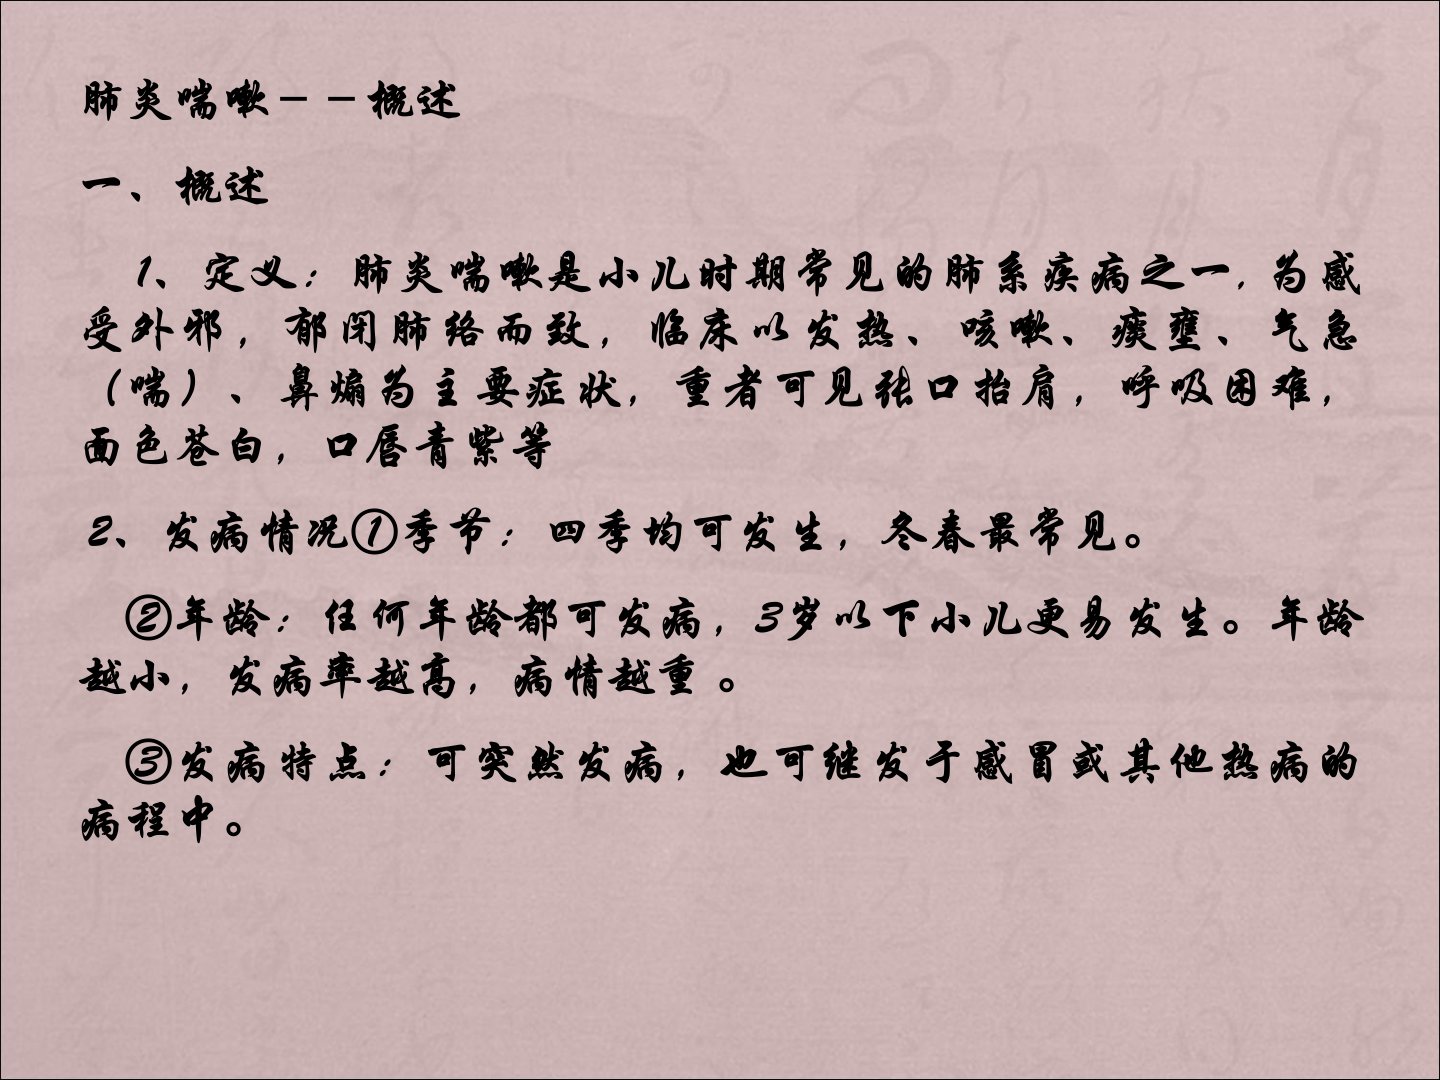 肺炎喘嗽－－概述
一、概述
1、定义：肺炎喘嗽是小儿时期常见的肺系疾病之一，为感
受外邪，郁闭肺络而致，临床以发热、咳嗽、痰壅、气急
（喘）、鼻煽为主要症状，重者可见张口抬肩，呼吸困难，
面色苍白，口唇青紫等
2、发病情况①季节：四季均可发生，冬春最常见。
②年龄：任何年龄都可发病，3岁以下小儿更易发生。年龄
越小，发病率越高，病情越重 。
③发病特点：可突然发病，也可继发于感冒或其他热病的
病程中。